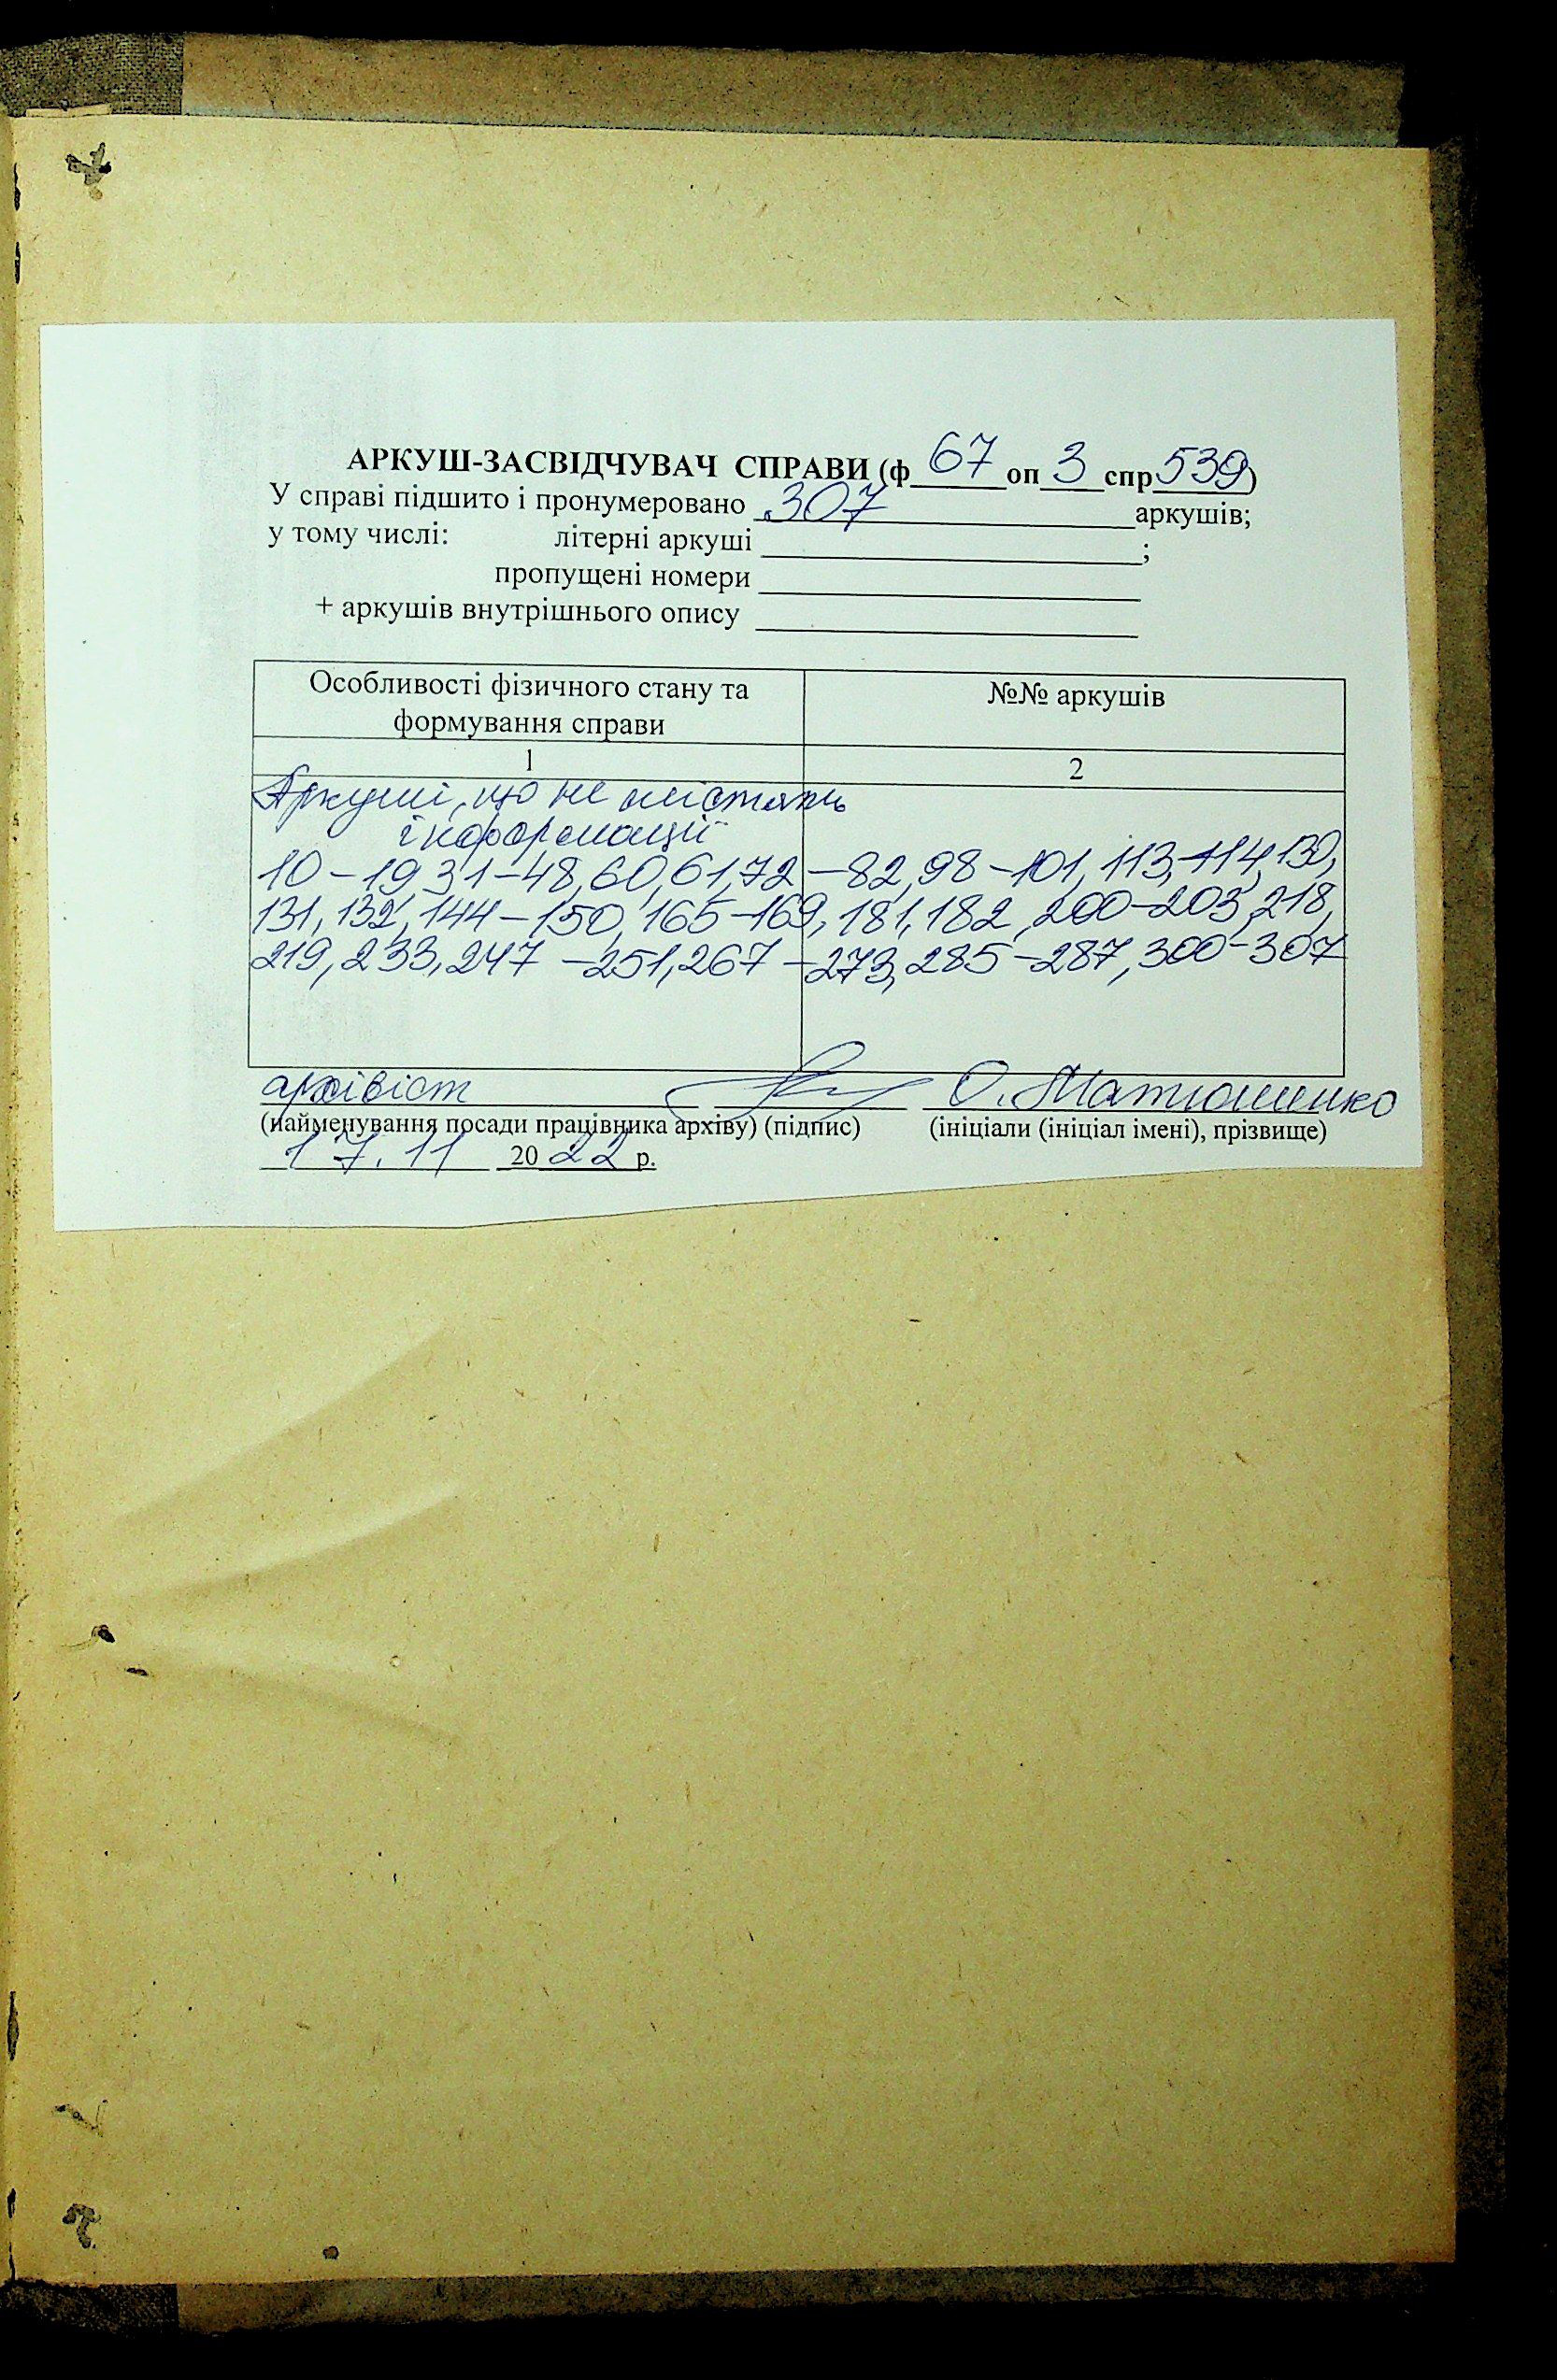 АРКУШ-ЗАСВІДЧУВАЧ СПРАВИ (ф 67 оп 3 спр 539)
У справі підшито і пронумеровано 307 аркушів;
у тому числі: літерні аркуші ;
пропущені номери
+ аркушів внутрішнього опису
Особливості фізичного стану та формування справи №№ аркушів
1 2
Аркуші, що не містять
інформації
10-19, 31-48, 60, 61, 72-82, 98-101, 113, 114, 130,
131, 132, 144-150, 165-169, 181, 182, 200-203, 218,
219, 233, 247-251, 267-273, 285-287, 300-307
архівіст О. Матюшенко
(найменування посади працівника архіву) (підпис) (ініціали (ініціал імені), прізвище)
17.11 2022 р.